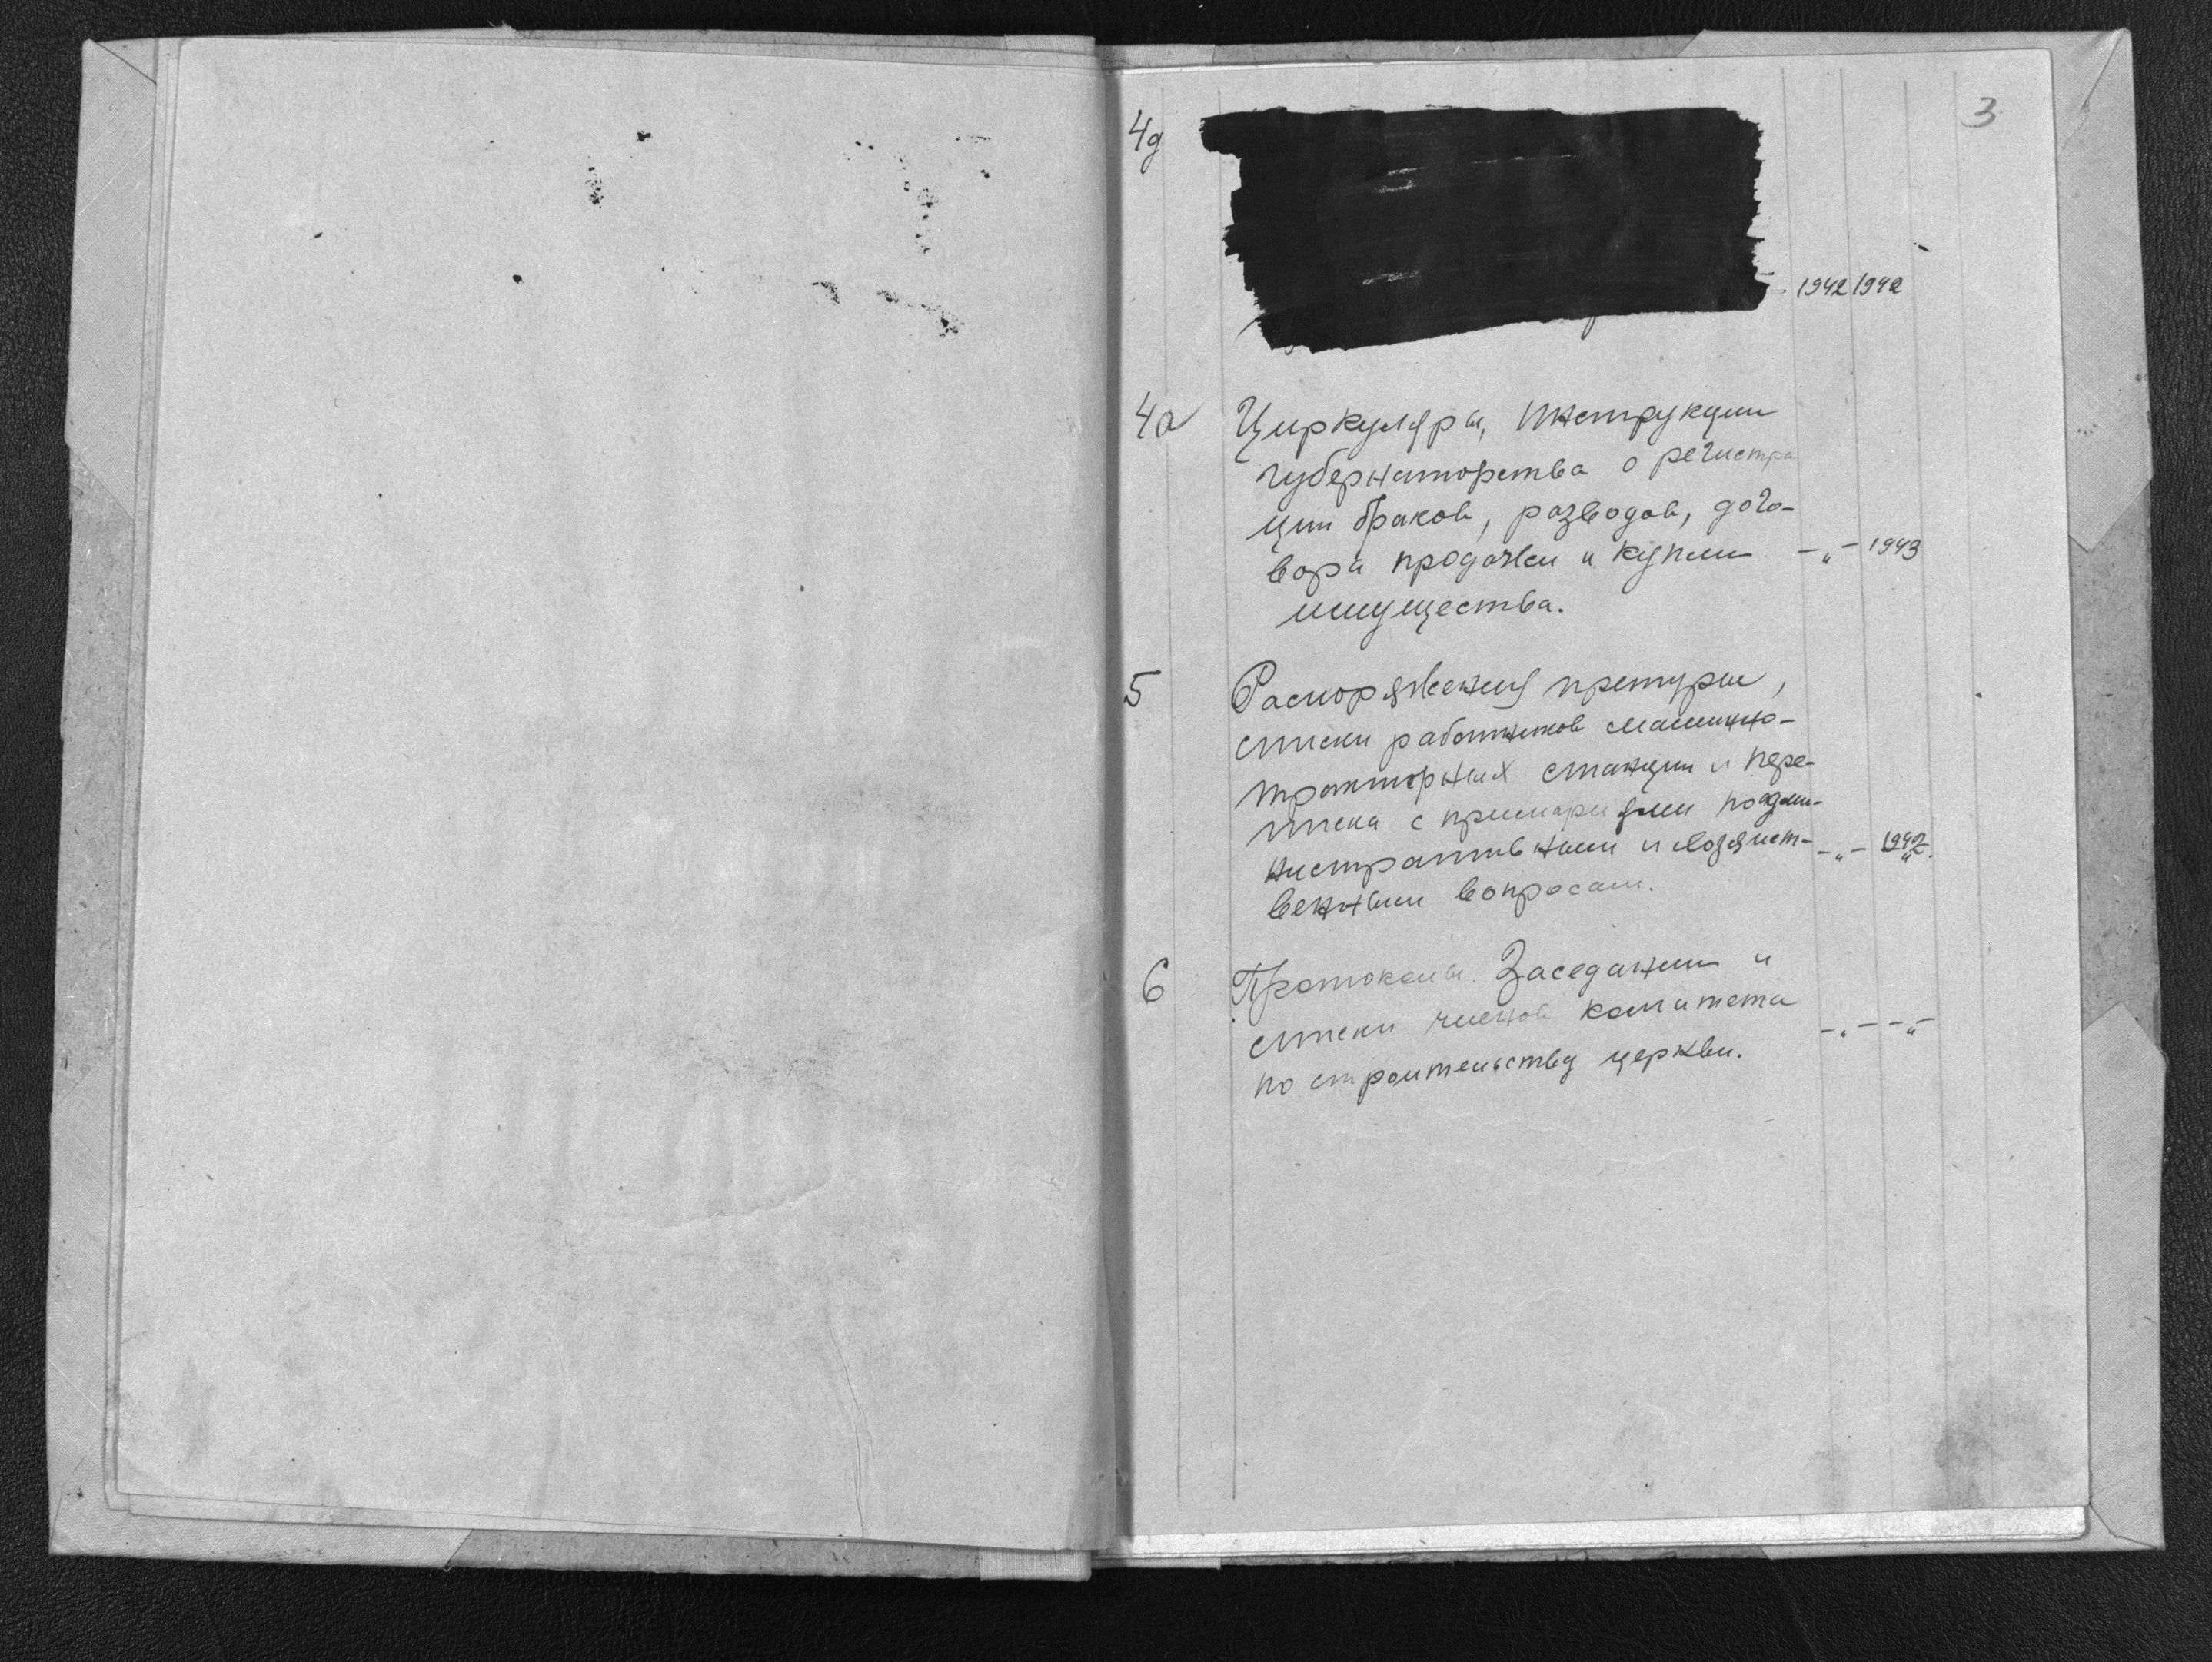 3
4д
1942 1942
4а Циркуляры, инструкции
губернаторства о регистра
ции браков, разводов, дого-
вора продажи и купли -„- 1943
имущества.
5 Распоряжения претуры,
списки работников машинно-
тракторных станции и пере-
писка с примариями по адми-
нистративным и хозяйст- -„- 1942
венным вопросам.
6 Протоколы заседании и
списки членов комитета
по строительству церкви. -„- -„-